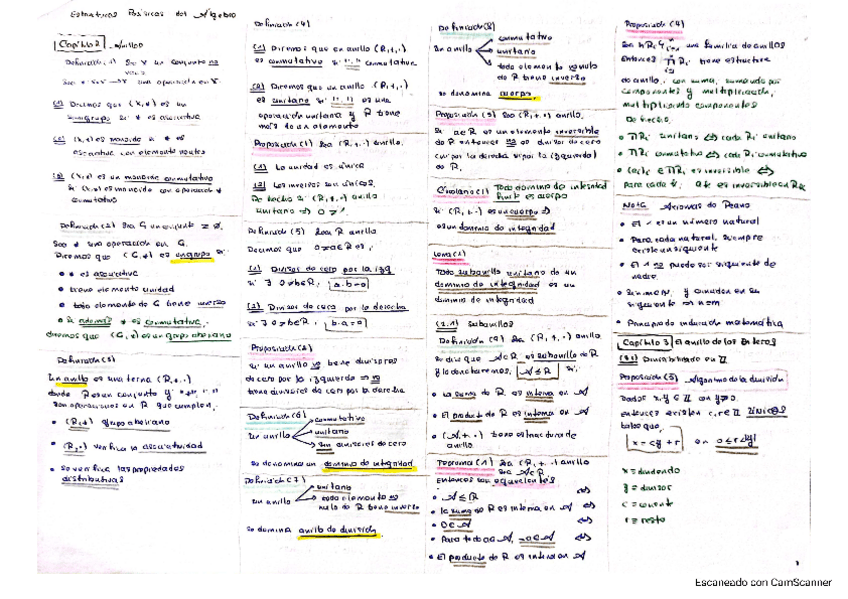 Estructuras Básicas del Álgebra
Capítulo 2 Anillos
Definición(1) Sea X un conjunto no vacío
(1) Diremos que (X,*) es un
semigrupo si * es asociativa
(2) (X,*) es monoide si * es
asociativa con elemento neutro
(3) (X,*) es un monoide conmutativo
si (X,*) es monoide con operación *
conmutativa
Definición(2) Sea G un conjunto ≠ ∅.
Sea * una operación en G.
Diremos que (G,*) es un grupo si:
• * es asociativa
• tiene elemento unidad
• todo elemento de G tiene inverso
• Si además * es conmutativa,
diremos que (G,*) es un grupo abeliano
Definición(3)
Un anillo es una terna (R,+,·)
donde R es un conjunto y "+", "·"
son operaciones en R que cumplen,
• (R,+) grupo abeliano
• (R,·) verifica la asociatividad
• se verifica las propiedades
distributivas
Definición(4)
(1) Diremos que un anillo (R,+,·)
es conmutativo si "·" conmutativa
(2) Diremos que un anillo (R,+,·)
es unitario si "·" es una
operación unitaria y R tiene
más de un elemento
Proposición(1) Sea (R,+,·) anillo.
(1) La unidad es única
(2) Los inversos son únicos.
De hecho si (R,+,·) anillo
unitario ⇒ 0 ≠ 1
Definición(5) Sea R anillo
Decimos que 0≠a∈R es:
(1) Divisor de cero por la izq
si ∃ 0≠b∈R, a·b=0
(2) Divisor de cero por la derecha
si ∃ 0≠b∈R, b·a=0
Proposición(2)
Si un anillo no tiene divisores
de cero por la izquierda ⇒ no
tiene divisores de cero por la derecha
Definición(6)
Un anillo
conmutativo
unitario
sin divisores de cero
se denomina un dominio de integridad
Definición(7)
Un anillo
unitario
todo elemento no
nulo de R tiene inverso
se denomina anillo de división
Definición(8)
Un anillo
conmutativo
unitario
todo elemento no nulo
de R tiene inverso
se denomina cuerpo.
Proposición(3) Sea (R,+,·) anillo.
Si a∈R es un elemento inversible
de R entonces no es divisor de cero
(ni por la derecha ni por la izquierda)
de R.
Corolario(1) Todo dominio de integridad
finito es cuerpo
Si (R,+,·) es un cuerpo ⇒
es un dominio de integridad
Lema(1)
Todo subanillo unitario de un
dominio de integridad es un
dominio de integridad
(2.1) Subanillos
Definición(9) Sea (R,+,·) anillo
se dice que A⊂R es subanillo de R
y lo denotaremos, A≤R si:
• La suma de R es interna en A
• El producto de R es interna en A
• (A,+,·) tiene estructura de
anillo
Teorema(1) Sea (R,+,·) anillo
Sea A⊂R
entonces son equivalentes
• A≤R ⇔
• la suma de R es interna en A ⇔
• 0∈A ⇔
• Para todo a∈A, -a∈A ⇔
• El producto de R es interna en A
Proposición(4)
una familia de anillos
entonces tiene estructura
de anillo, con suma, sumando por
componentes y multiplicación,
multiplicando componentes
De hecho:
• ΠRi unitario ⇔ cada Ri unitario
• ΠRi conmutativo ⇔ cada Ri conmutativo
• es inversible ⇔
para cada es inversible en
Nota Axiomas de Peano
• El 1 es un número natural
• Para cada natural, siempre
existe un siguiente
• El 1 no puede ser siguiente de
nadie
• siguiente
• Principio de inducción matemática
Capítulo 3 El anillo de los Enteros
(3.1) Divisibilidad en ℤ
Proposición(5) Algoritmo de la división
Dados x,y∈ℤ con y≠0,
entonces existen c,r∈ℤ únicos
tales que,
x = cy + r con 0≤r<|y|
x = dividendo
y = divisor
c = cociente
r = resto
Escaneado con CamScanner